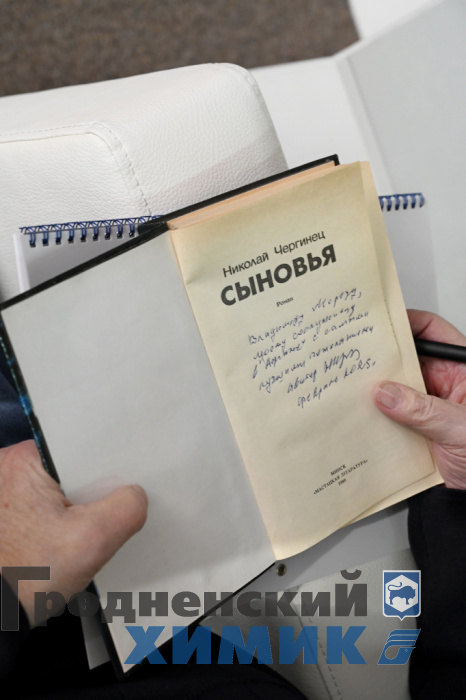 Николай Чергинец
СЫНОВЬЯ
Роман
Владимиру
моему сослуживцу
в "Афгане" с самыми
пожеланиями
Автор
февраль
МИНСК
«МАСТАЦКАЯ ЛІТАРАТУРА»
1989
Гродненский
ХИМИК